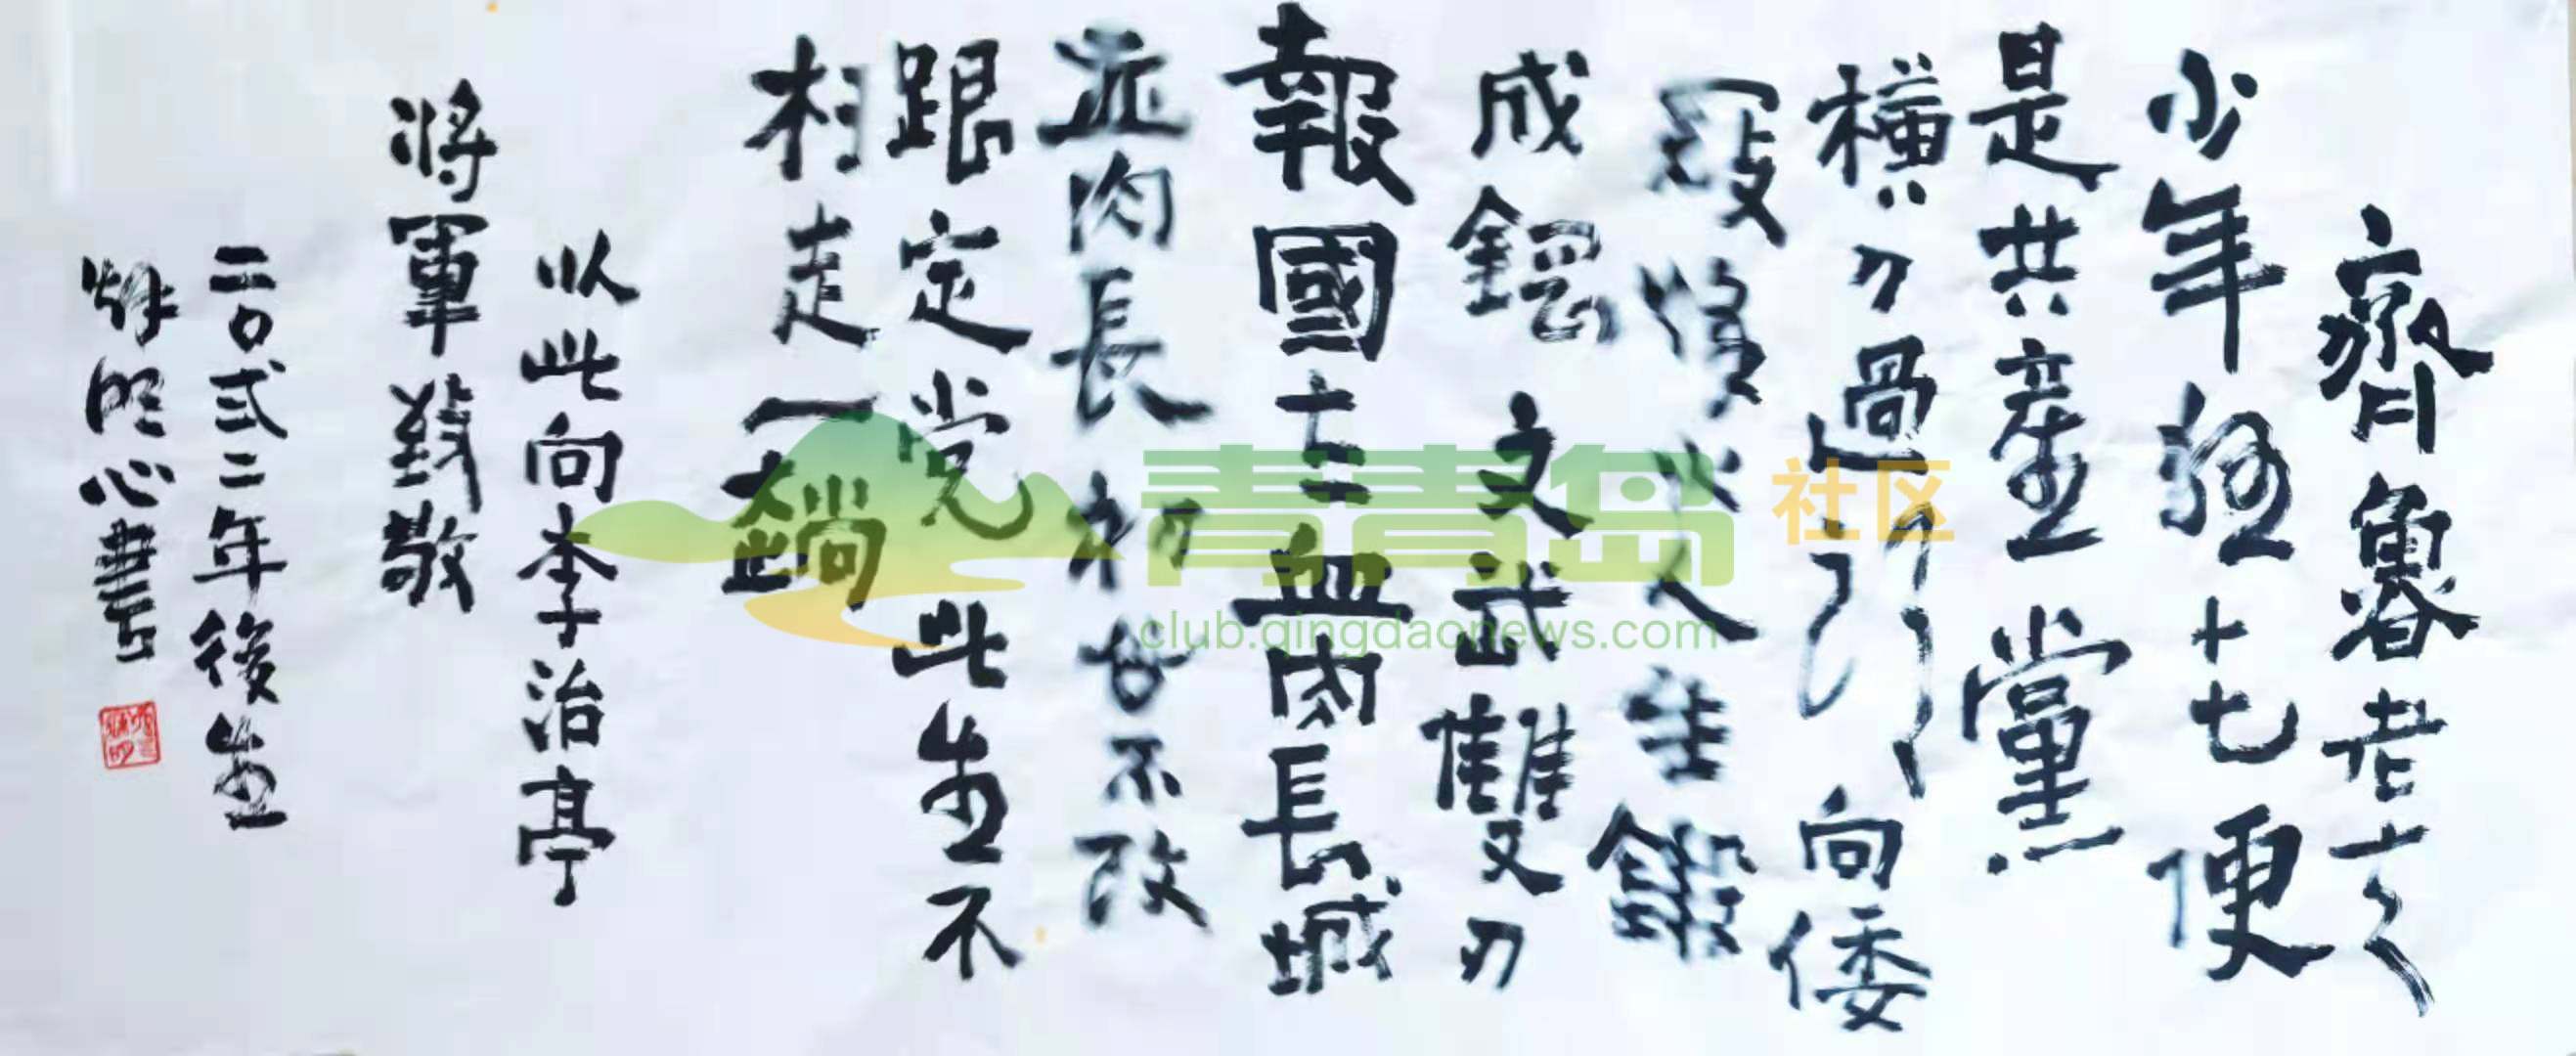 齊魯老
少年十七便
是共產黨
橫刀過向倭
寇烽火人生鍛
成鋼文武雙刃
報國志血肉長城
肉長初不改
跟定党此生不
枉走一趟
以此向李治亭
將軍致敬
二〇弍二年後生
心書
青青岛社区
club.qingdaonews.com